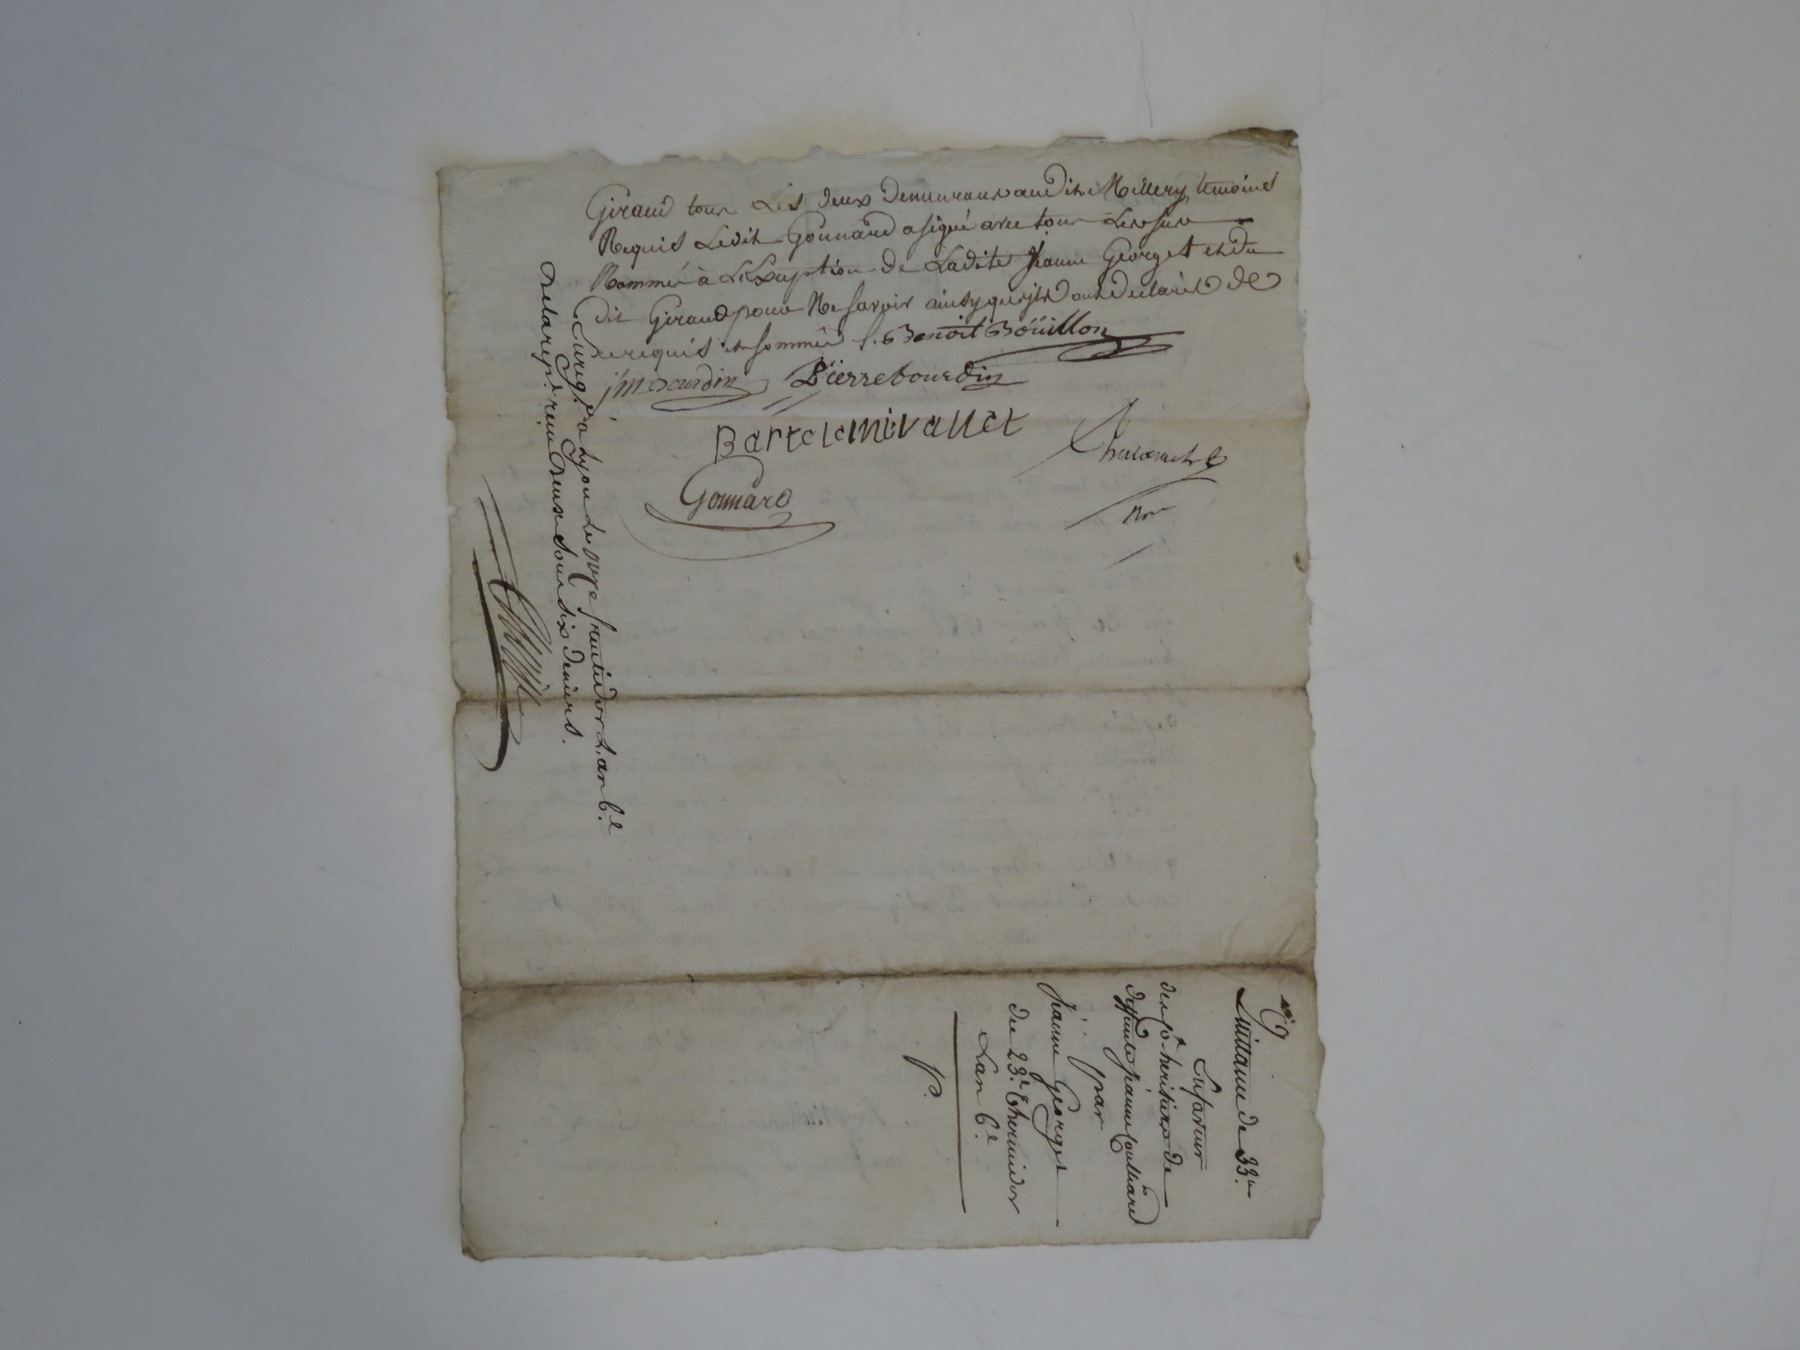 Giraud tous Les deux demeurant audit Millery, temoins
Requis Ledit Gonnard a signé avec tous Les susd
Nommés à L'Exception de Ladite Jeanne Georget et du
dit Giraud pour Ne savoir ainsy qu'ils ont declarés de
ce requis et sommés /. Benoit Boüillon
j m bourdin Pierre bourdin
Bartelemi vallet
Gonnard
Nore
Enreg. à Lyon Le onze fructidor L'an 6.e
declarep. reçu deux sous six deniers.
Quittance de 33.
En faveur
des co-heritiers de
deffunte jeanne Coulhard
par
Jeanne Georget
du 23.e Thermidor
L'an 6.e
P.